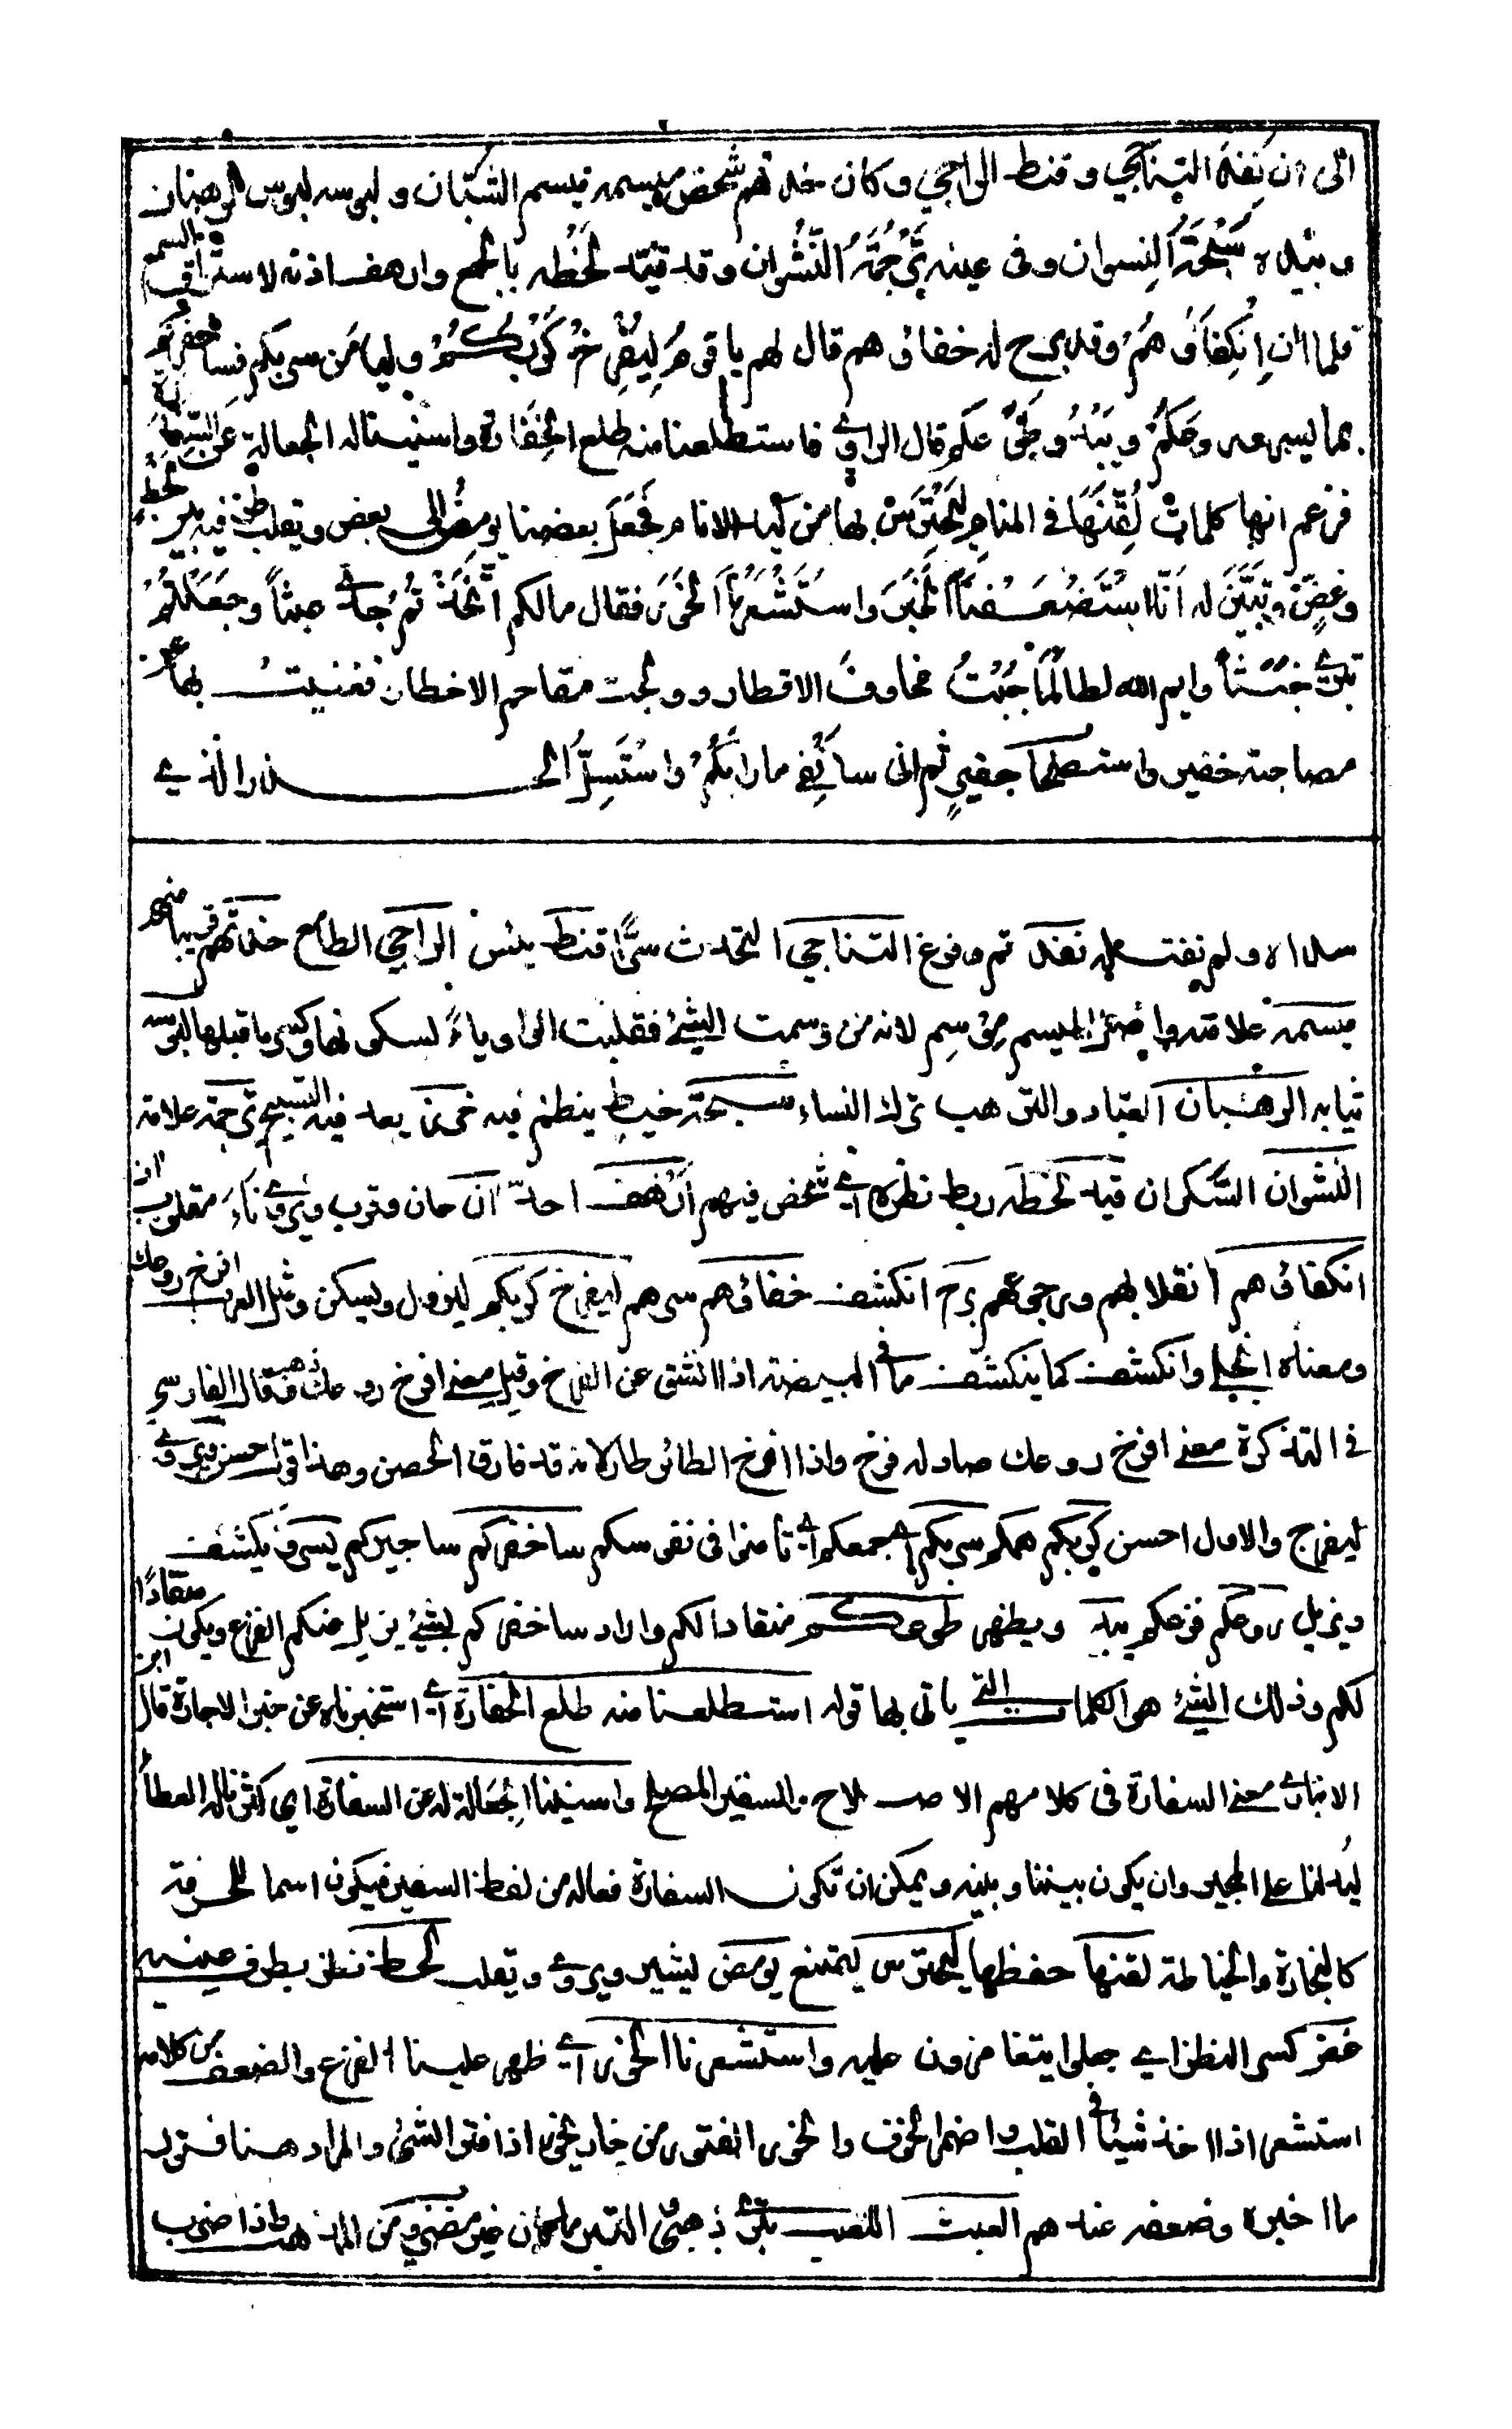 الى ان نفد التناجي وقنط الراجي وكان حذتهم شخص ميسمه ميسم الشبّان ولبوسه لبوس الرهبان
وبيده سُبْحَةُ النِسوان وفي عينه تَرْجُمَةُ النَّشْوان وقد قيّد لَحْظَه بالجمع وارهف اذنه لاستراق السمع
فلما انِ انْكِفاؤُهُمْ وقد برح له خفاؤهم قال لهم يا قوم لِيُفْرِخْ كَرْبُكُمْ وليامن سربكم فساخفركم
بما يسرو روعَكُمْ ويبدُو طَوْعكم قال الراوي فاستطلعنا منه طلع الخِفَارة واسنينا له الجعالة عن السِفارة
فزعم انها كلمات لُقِّنَهَا في المنام ليَحْتَرِسَ بها من كيد الانام فجعل بعضنا يومض الى بعض ويقلب طرفيه بين لحظ
وغضٍّ وتبيّن له انّا استضعفنا الخبر واستشعرنا الخور فقال ما لكم اتخذتم جدي عبثًا وجعلتم
تبري خبثًا وايم الله لطالما جُبْتُ مخاوف الاقطار وولجت مقاحم الاخطار فغنيت بها عن
مصاحبة خفير واستصحاب جفيرٍ ثم اني سانفي ما رابكم واستسل الحذر الذي
سداه ولم نفتـ نفد تم وفرغ التناجي التحدث سرًّا قنط يئس الراجي الطامع حذتهم قريبا منهم
ميسمه علامته واصل الميسم مِوْسم لانه من وسمت الشيء فقلبت الواو ياءً لسكونها وكسر ما قبلها لبوسه
ثيابه الرهبان العباد والترهب ترك النساء سبحة خيط ينظم فيه خرز يعد فيه التسبيح ترجمة علامة
النشوان السكران قيد لحظه ربط نظره اي شخص فيهم ارهف احدّ آن حان وقرب ويروى ناء مقلوب ان
انكفاؤهم انقلابهم ورجوعهم برح انكشف خفاؤهم سرهم ليفرخ كربكم ليزول ويسكن ومثل العرب افرخ روعك
ومعناه انجلى وانكشف كما ينكشف ما في البيضة اذا انشق عن الفرخ وقيل معنى افرخ روعك ذهب فقال الفارسي
في التذكرة معنى افرخ روعك صار له فرخ واذا افرخ الطائر طار لانه قد فارق الحصن وهذا قول احسن ويروى
ليفرج والاول احسن كربكم همكم سربكم جمعكم اي تامنوا في نفوسكم ساخفركم ساجيركم يسرو يكشف
ويزيل روعكم فزعكم يبد ويظهر طوعكم منقادا لكم واراد ساخفركم بشيء يزيل عنكم الفزع ويكون منقادًا
لكم وذلك الشيء هو الكلمات التي ياتي بها قوله استطلعنا منه طلع الخفارة اي استخبرناه عن خبر الاجارة قال ابن
الانباري معنى السفارة في كلامهم الاصلاح والسفير المصلح واسنينا الجعالة له عن السفارة اي اكثرنا له العطاء
ليدلنا على المجير وان يكون بيننا وبينه ويمكن ان تكون السفارة فعالة من لفظ السفير فيكون اسما للحرفة
كالنجارة والخياطة لقنها حفظها ليحترس ليمتنع يومض ليشير ويروى ويقلب لحظ نظر بطرف عينيه
غض كسر النظر اي جعلوا يتغامزون عليه واستشعرنا الخور اي ظهر علينا الفزع والضعف من كلامه
استشعر اذا اخذ شيئا في القلب واضمر الخوف والخور الفتور من خار يخور اذا فتر الشيء والمراد هنا فتور
ما اخبره وضعفه عندهم العبث اللعب تبري ذهبي التبر ما كان غير مضروب من الذهب فاذا ضرب